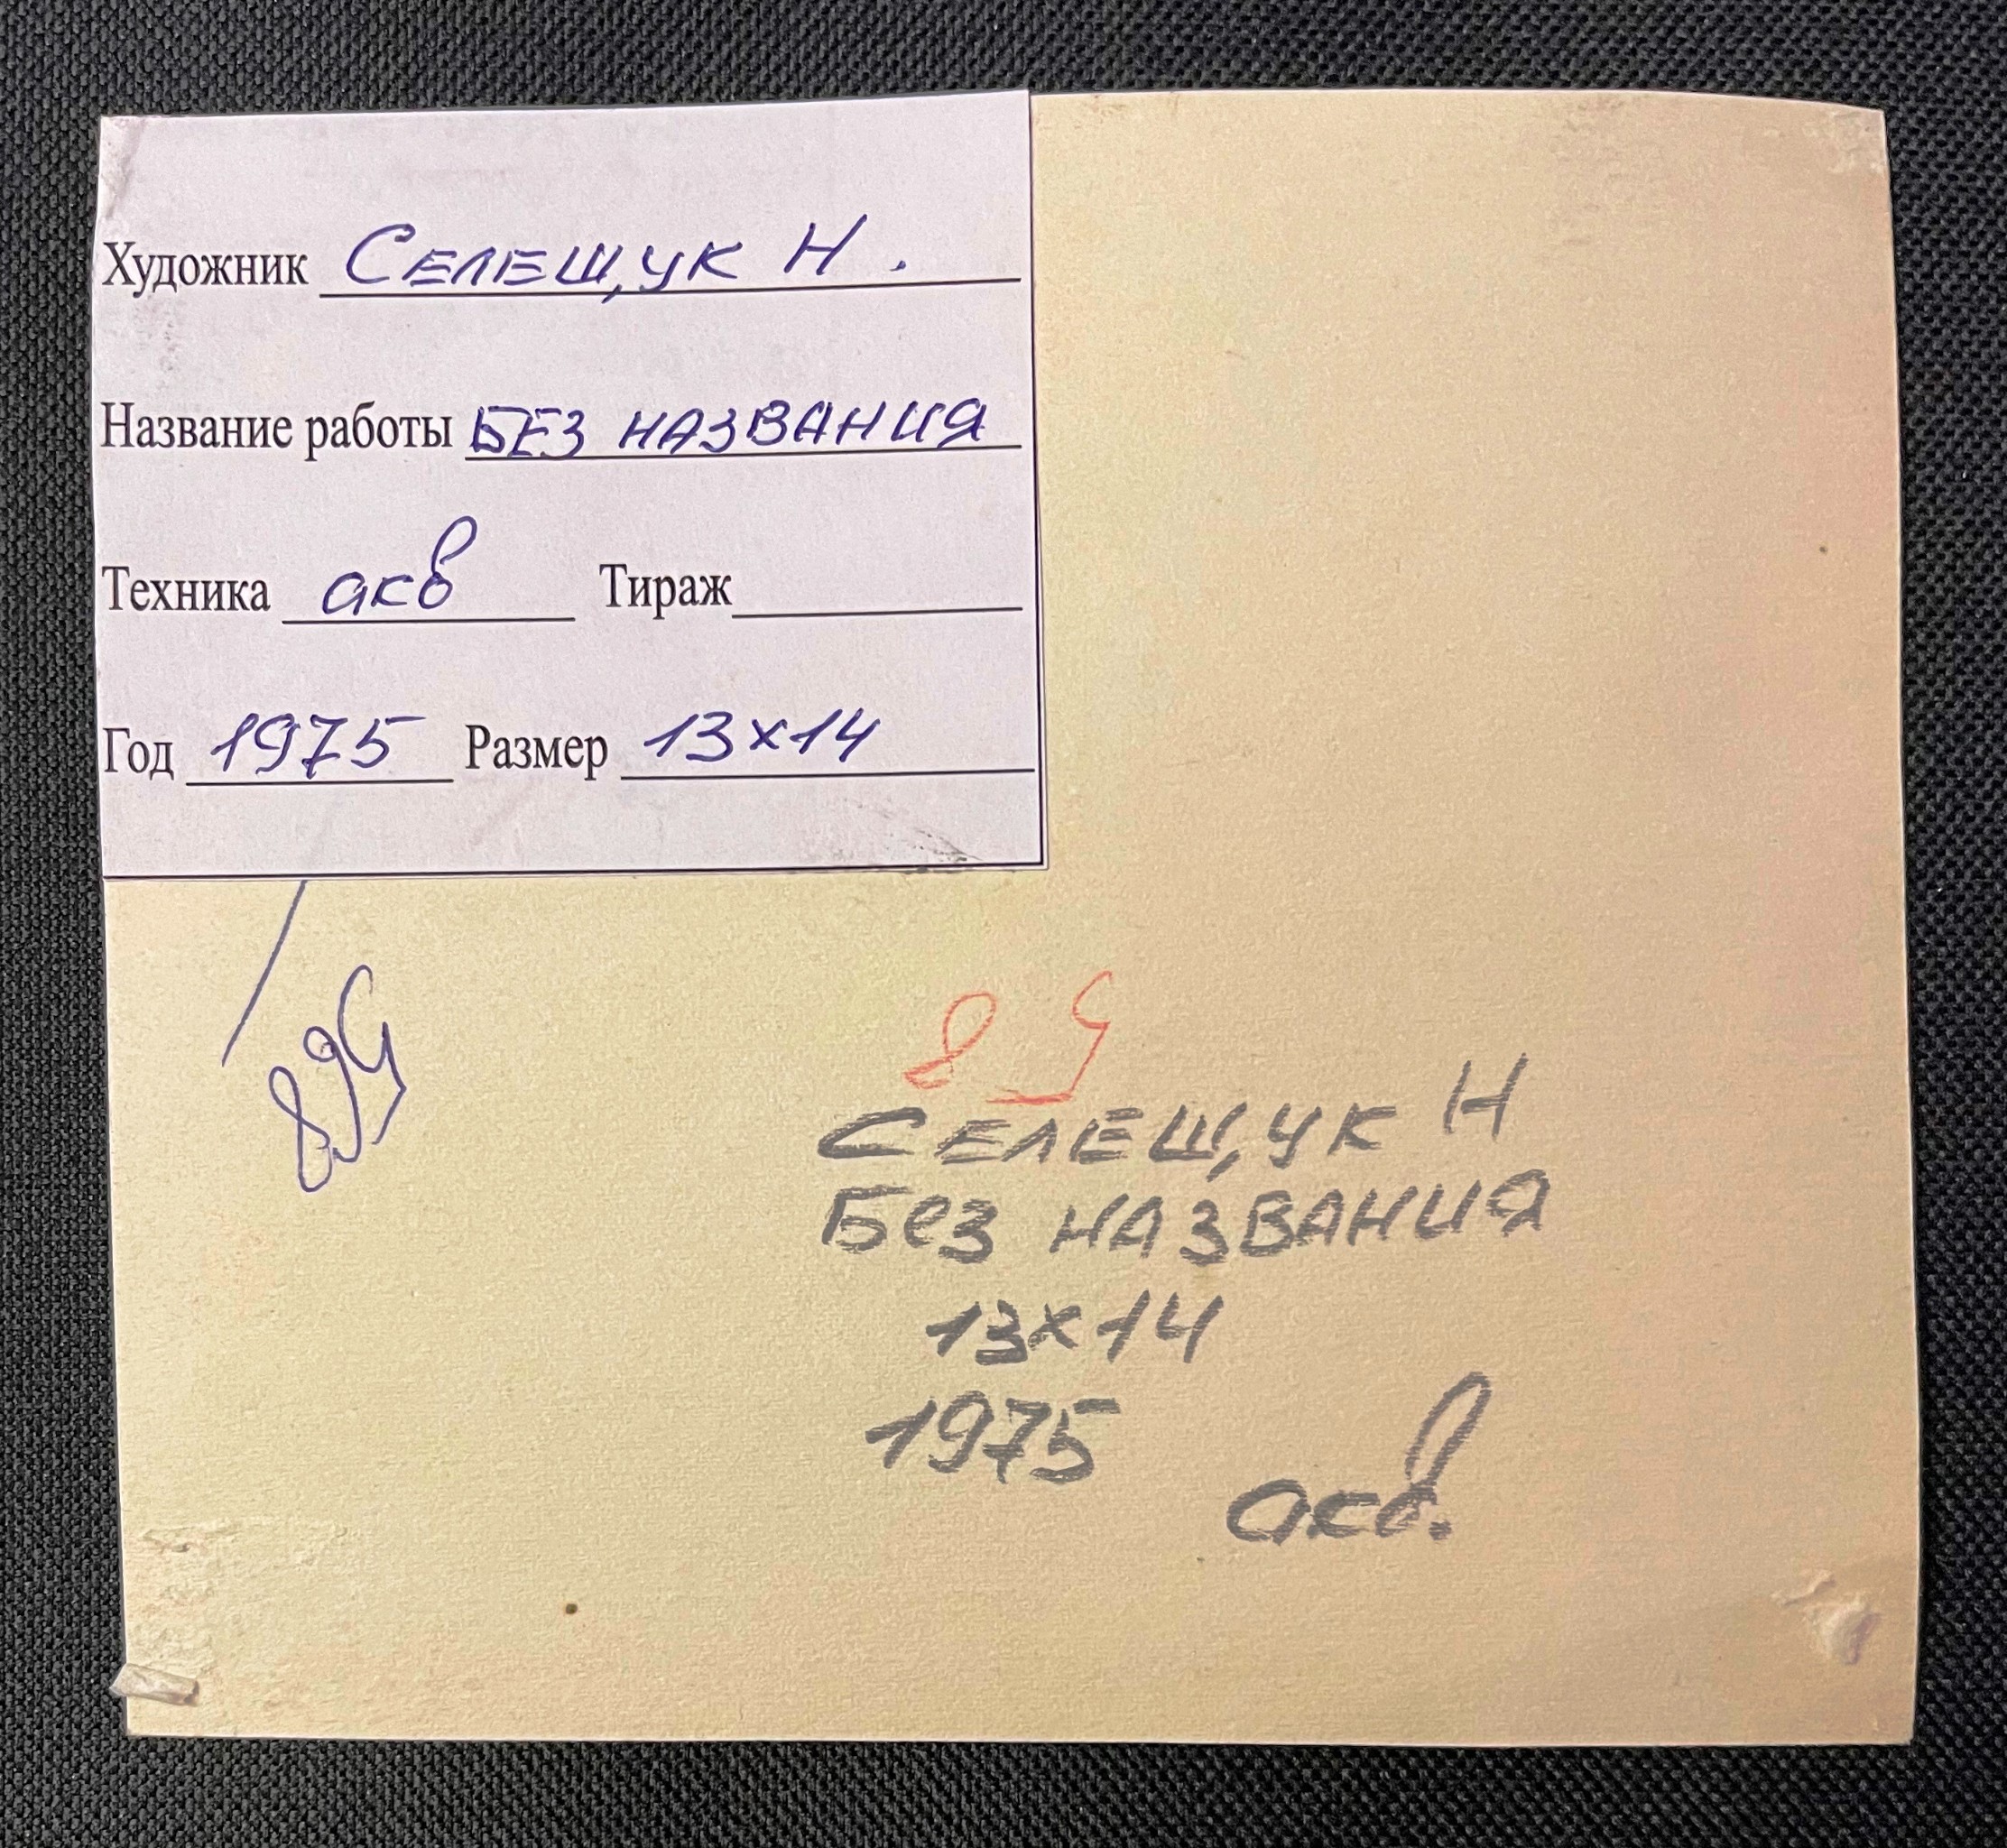 Художник Селещук Н.
Название работы БЕЗ НАЗВАНИЯ
Техника акв Тираж
Год 1975 Размер 13х14
Селещук Н
Без названия
13х14
1975
акв.